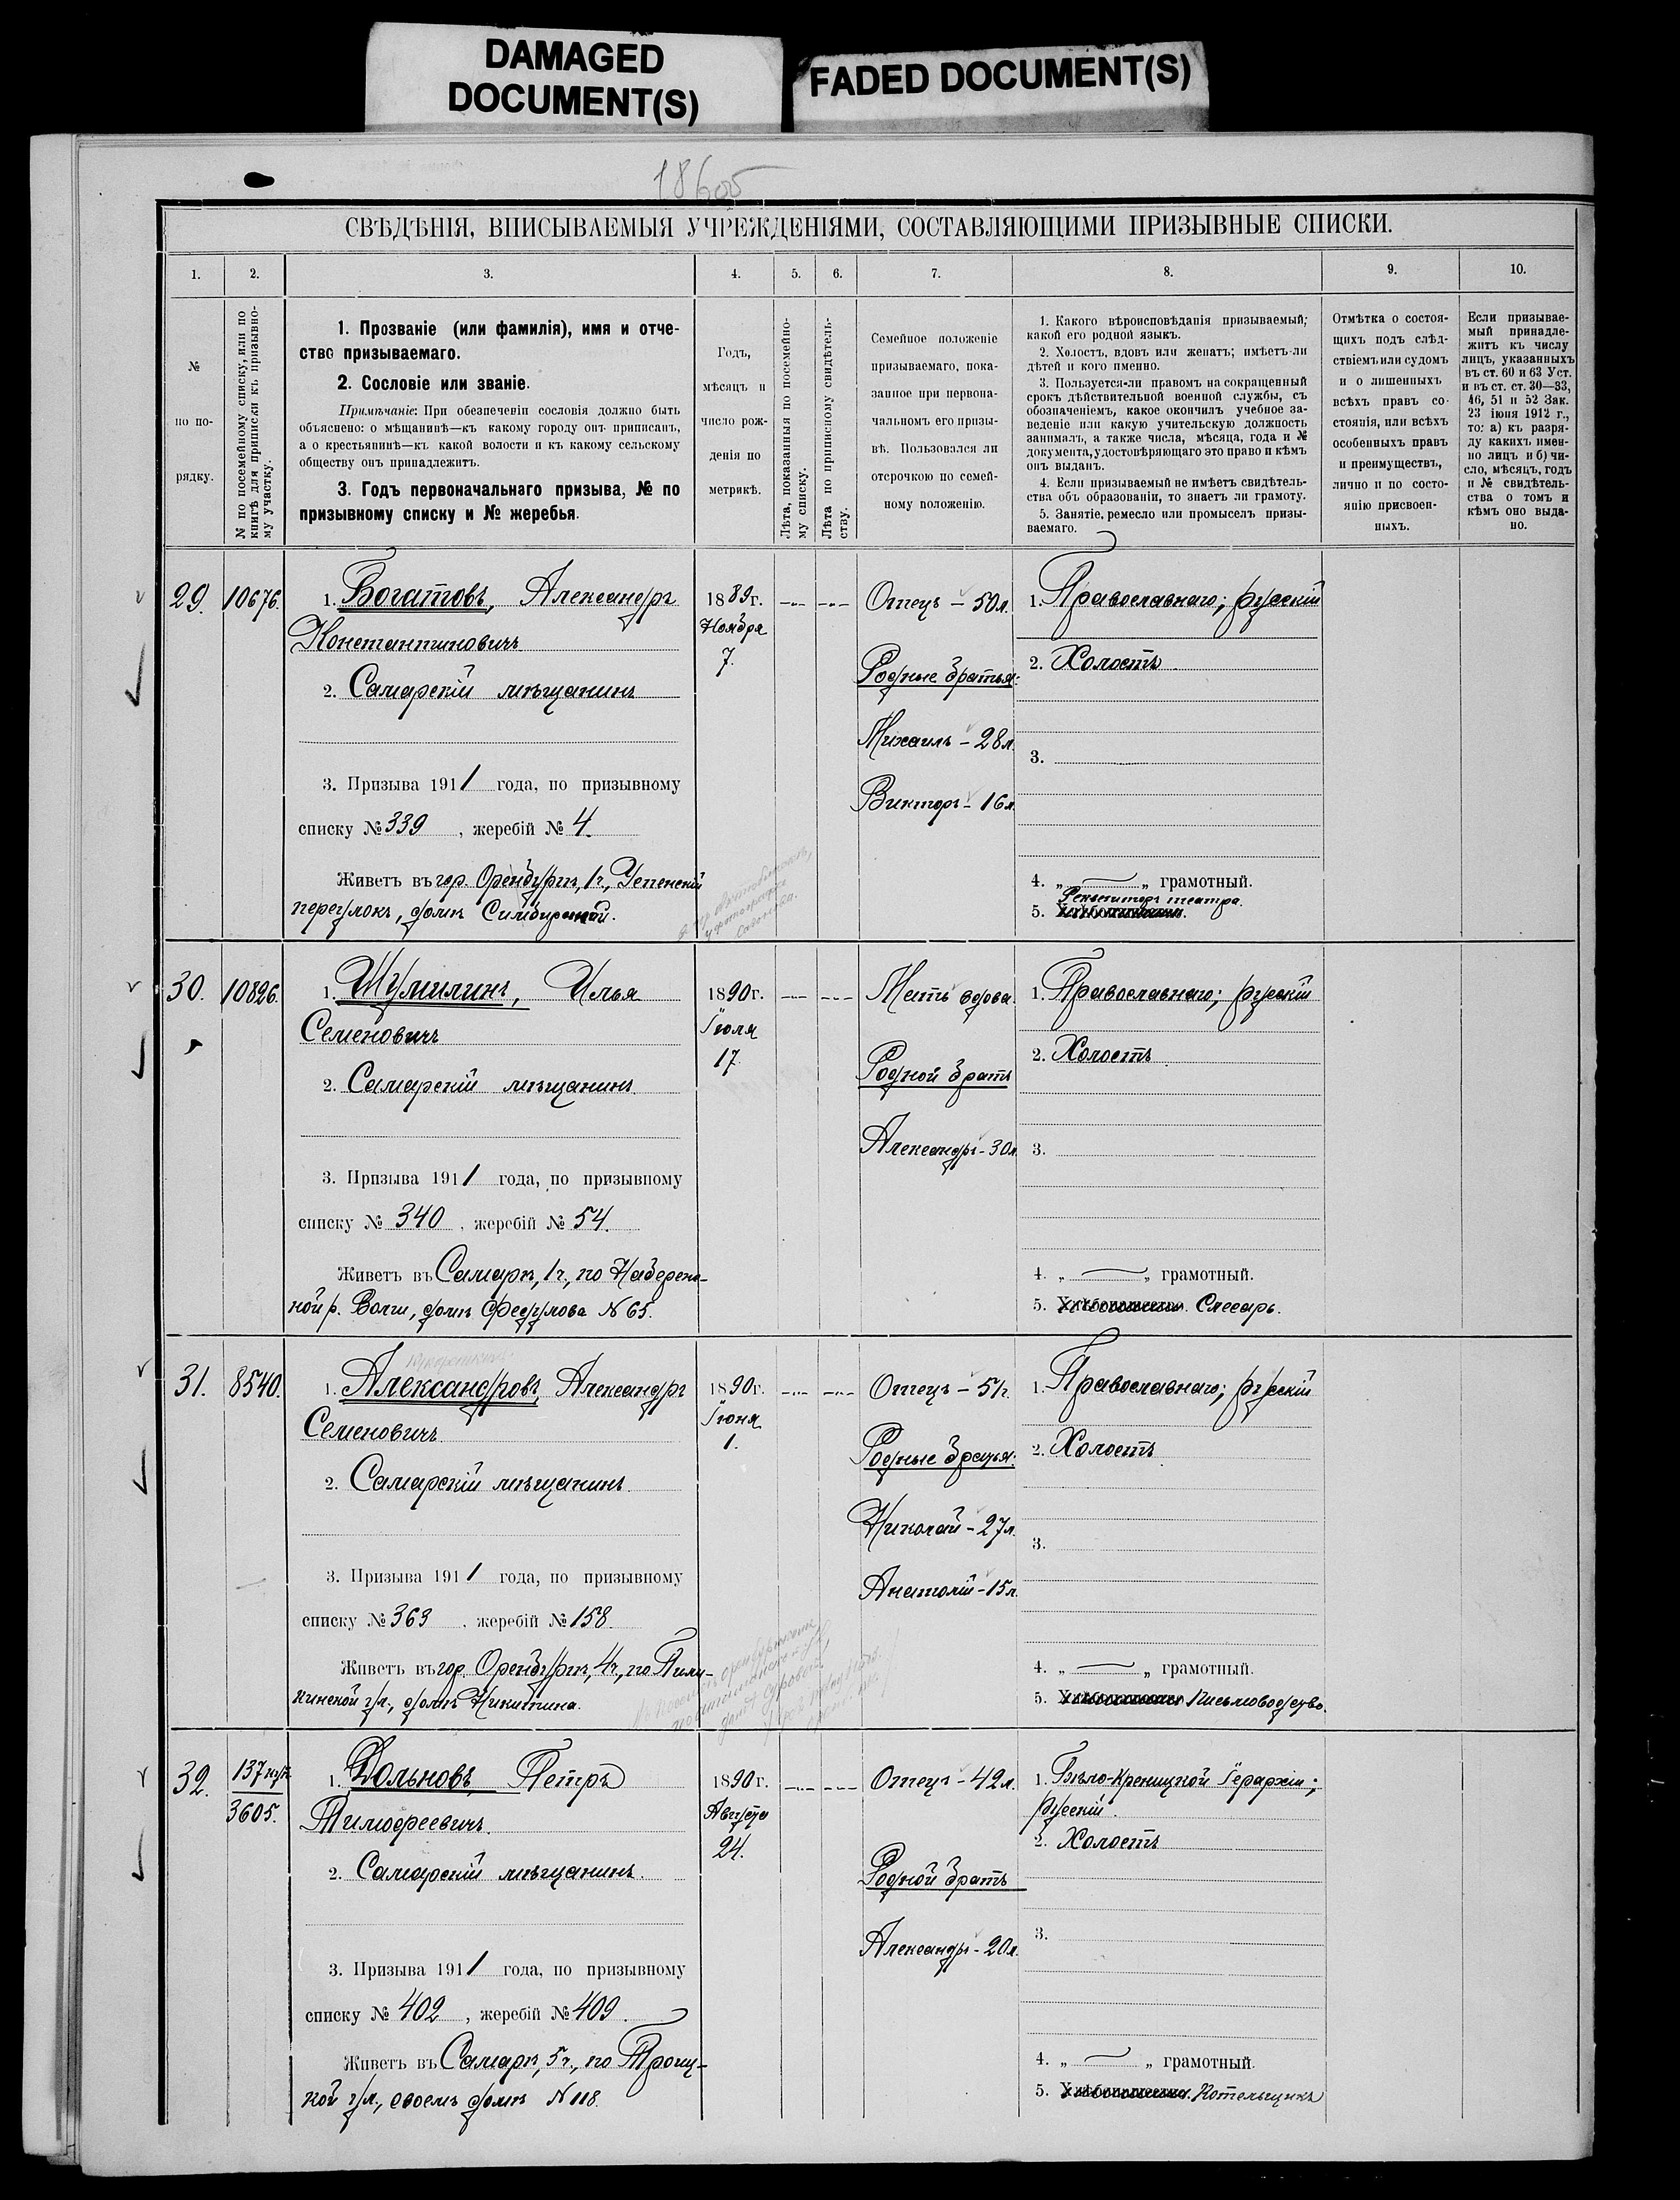 DAMAGED
DOCUMENT(S)
FADED DOCUMENT(S)
18605
СВѢДѢНІЯ, ВПИСЫВАЕМЫЯ УЧРЕЖДЕНІЯМИ, СОСТАВЛЯЮЩИМИ ПРИЗЫВНЫЕ СПИСКИ.
1. 2. 3. 4. 5. 6. 7. 8. 9. 10.
№
по по-
рядку.
№ по посемейному списку, или по
книгѣ для приписки къ призывно-
му участку.
1. Прозваніе (или фамилія), имя и отче-
ство призываемаго.
2. Сословіе или званіе.
Примѣчаніе: При обезпеченіи сословія должно быть
объяснено: о мѣщанинѣ—къ какому городу онъ приписанъ,
а о крестьянинѣ—къ какой волости и къ какому сельскому
обществу онъ принадлежитъ.
3. Годъ первоначальнаго призыва, № по
призывному списку и № жеребья.
Годъ,
мѣсяцъ и
число рож-
денія по
метрикѣ.
Лѣта, показанныя по посемейно-
му списку.
Лѣта по приписному свидѣтель-
ству.
Семейное положеніе
призываемаго, пока-
занное при первона-
чальномъ его призы-
вѣ. Пользовался ли
отсрочкою по семей-
ному положенію.
1. Какого вѣроисповѣданія призываемый;
какой его родной языкъ.
2. Холостъ, вдовъ или женатъ; имѣетъ-ли
дѣтей и кого именно.
3. Пользуется-ли правомъ на сокращенный
срокъ дѣйствительной военной службы, съ
обозначеніемъ, какое окончилъ учебное за-
веденіе или какую учительскую должность
занималъ, а также числа, мѣсяца, года и №
документа, удостовѣряющаго это право и кѣмъ
онъ выданъ.
4. Если призываемый не имѣетъ свидѣтель-
ства объ образованіи, то знаетъ ли грамоту.
5. Занятіе, ремесло или промыселъ призы-
ваемаго.
Отмѣтка о состоя-
щихъ подъ слѣд-
ствіемъ или судомъ
и о лишенныхъ
всѣхъ правъ со-
стоянія, или всѣхъ
особенныхъ правъ
и преимуществъ,
лично и по состо-
янію присвоен-
ныхъ.
Если призывае-
мый принадле-
житъ къ числу
лицъ, указанныхъ
въ ст. 60 и 63 Уст.
и въ ст. ст. 30—33,
46, 51 и 52 Зак.
23 іюня 1912 г.,
то: а) къ разря-
ду какихъ имен-
но лицъ и б) чи-
сло, мѣсяцъ, годъ
и № свидѣтель-
ства о томъ и
кѣмъ оно выда-
но.
29. 10676.
1. Богатовъ, Александръ
Константиновичъ
2. Самарскій мѣщанинъ
3. Призыва 1911 года, по призывному
списку № 339, жеребій № 4.
Живетъ въ гор. Оренбургѣ, 1ч., Успенскій
переулокъ, домъ Симбирской.
1889г.
Ноября
7.
Отецъ — 50л.
Родные братья:
Михаилъ — 28л.
Викторъ — 16л.
1. Православнаго; русскій
2. Холостъ
3.
4. „ — „ грамотный.
Реквизиторъ театра.
5. Хлѣбопашество.
30. 10826.
1. Шумилинъ, Илья
Семеновичъ
2. Самарскій мѣщанинъ.
3. Призыва 1911 года, по призывному
списку № 340, жеребій № 54.
Живетъ въ Самарѣ, 1ч., по Набереж-
ной р. Волги, домъ Федулова № 65.
1890г.
Іюля
17.
Мать вдова.
Родной братъ
Александръ - 30л.
1. Православнаго; русскій
2. Холостъ
3.
4. „ — „ грамотный.
5. Хлѣбопашество. Слесарь.
31. 8540.
1. Александровъ, Александръ
Семеновичъ
2. Самарскій мѣщанинъ.
3. Призыва 1911 года, по призывному
списку № 363, жеребій № 158.
Живетъ въ гор. Оренбургѣ, 4ч., по
ул., домъ Никитина.
1890г.
Іюня
1.
Отецъ — 51г.
Родные братья:
Николай — 27л.
Анатолій — 15л.
1. Православнаго; русскій
2. Холостъ
3.
4. „ — „ грамотный.
5. Хлѣбопашество Письмоводство.
32. 137 куп.
3605.
1. Дольновъ, Петръ
Тимофеевичъ.
2. Самарскій мѣщанинъ.
3. Призыва 1911 года, по призывному
списку № 402, жеребій № 409.
Живетъ въ Самарѣ, 5ч., по Троиц-
кой ул., своемъ домѣ № 118.
1890г.
Августа
24.
Отецъ — 42л.
Родной братъ
Александръ - 20л.
1. Бѣло-Криницкой Іерархіи;
русскій.
2. Холостъ
3.
4. „ — „ грамотный.
5. Хлѣбопашество. Котельщикъ